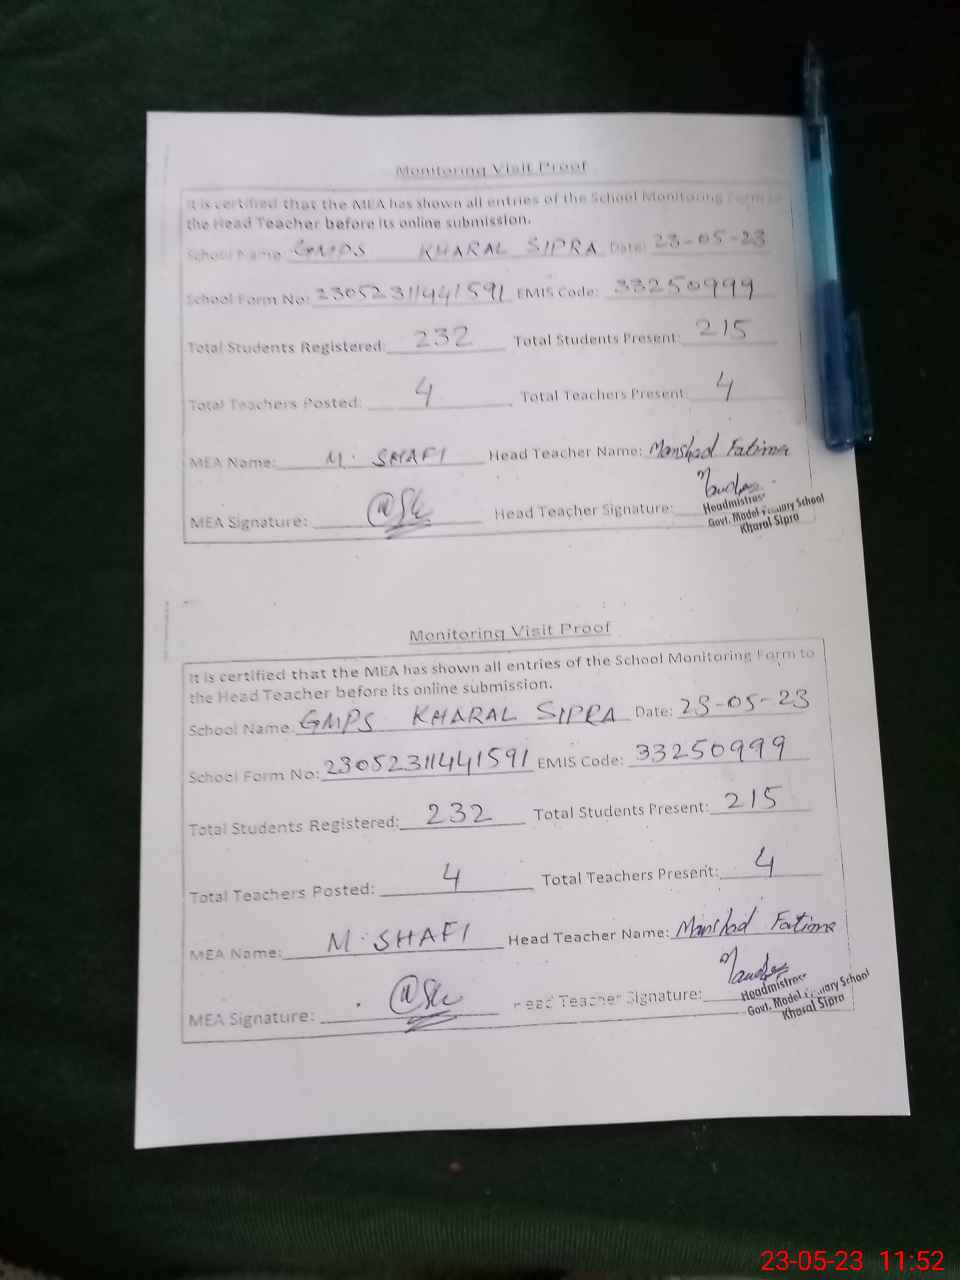 Monitoring Visit Proof
It is certified that the MEA has shown all entries of the School Monitoring Form to
the Head Teacher before its online submission.
School Name: GMPS KHARAL SIPRA Date: 23-05-23
School Form No: 23052311441591 EMIS Code: 33250999
Total Students Registered: 232 Total Students Present: 215
Total Teachers Posted: 4 Total Teachers Present: 4
MEA Name: M. SHAFI Head Teacher Name: Manshad Fatima
MEA Signature: Head Teacher Signature:
Headmistress
Govt. Model Primary School
Kharal Sipra
Monitoring Visit Proof
It is certified that the MEA has shown all entries of the School Monitoring Form to
the Head Teacher before its online submission.
School Name: GMPS KHARAL SIPRA Date: 23-05-23
School Form No: 23052311441591 EMIS Code: 33250999
Total Students Registered: 232 Total Students Present: 215
Total Teachers Posted: 4 Total Teachers Present: 4
MEA Name: M. SHAFI Head Teacher Name: Manshad Fatima
MEA Signature: Head Teacher Signature:
Headmistress
Govt. Model Primary School
Kharal Sipra
23-05-23 11:52